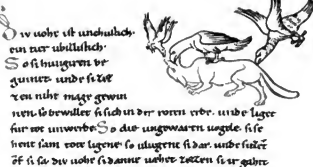 Div vohe ist unchuslich.
ein tier ubillislich.
So si hungeren be
ginnet. unde si ezze
zen niht mage gewin
nen. so bewillet si sich in der roten erde. unde liget
fur tot unwerde. So die ungewarn vogele. si se
hent sam tote ligene. so vliugent si dar. unde sizzet
of si sa div vohe si danne vahet